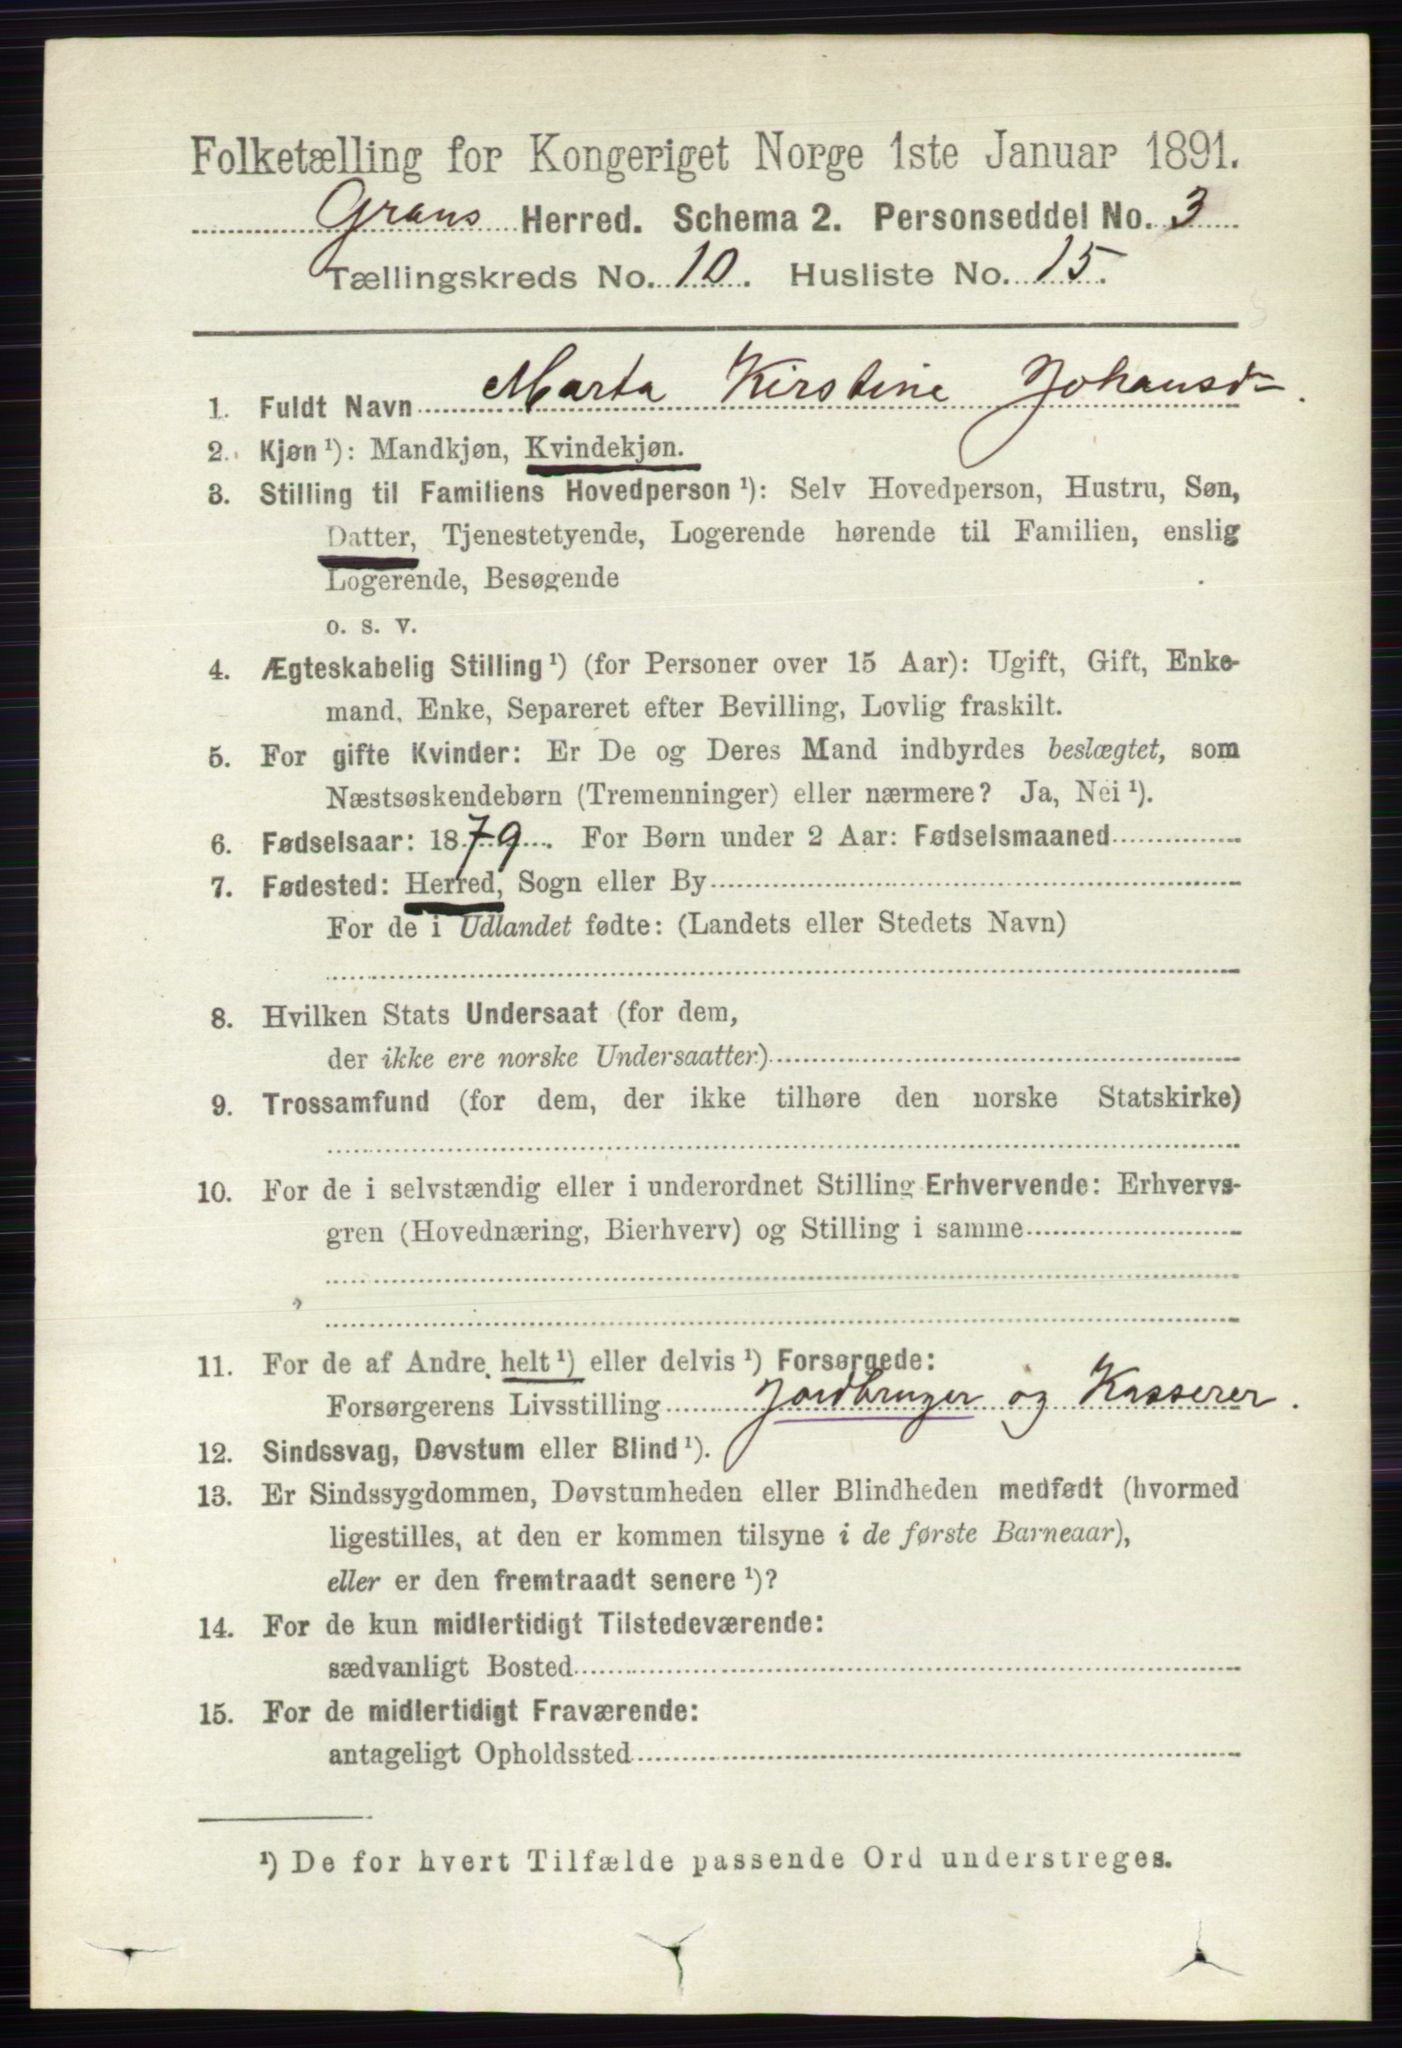 Folketælling for Kongeriget Norge 1ste Januar 1891.
Grans Herred. Schema 2. Personseddel No. 3
Tællingskreds No. 10. Husliste No. 15.
1. Fuldt Navn Marta Kirstine Johansd.
2. Kjøn ¹): Mandkjøn, Kvindekjøn.
3. Stilling til Familiens Hovedperson ¹): Selv Hovedperson, Hustru, Søn,
Datter, Tjenestetyende, Logerende hørende til Familien, enslig
Logerende, Besøgende
o. s. v.
4. Ægteskabelig Stilling ¹) (for Personer over 15 Aar): Ugift, Gift, Enke-
mand, Enke, Separeret efter Bevilling, Lovlig fraskilt.
5. For gifte Kvinder: Er De og Deres Mand indbyrdes beslægtet, som
Næstsøskendebørn (Tremenninger) eller nærmere? Ja, Nei ¹).
6. Fødselsaar: 1879. For Børn under 2 Aar: Fødselsmaaned
7. Fødested: Herred, Sogn eller By
For de i Udlandet fødte: (Landets eller Stedets Navn)
8. Hvilken Stats Undersaat (for dem,
der ikke ere norske Undersaatter)
9. Trossamfund (for dem, der ikke tilhøre den norske Statskirke)
10. For de i selvstændig eller i underordnet Stilling Erhvervende: Erhvervs-
gren (Hovednæring, Bierhverv) og Stilling i samme
11. For de af Andre helt ¹) eller delvis ¹) Forsørgede:
Forsørgerens Livsstilling Jordbruger og Kasserer.
12. Sindssvag, Døvstum eller Blind ¹).
13. Er Sindssygdommen, Døvstumheden eller Blindheden medfødt (hvormed
ligestilles, at den er kommen tilsyne i de første Barneaar),
eller er den fremtraadt senere ¹)?
14. For de kun midlertidigt Tilstedeværende:
sædvanligt Bosted
15. For de midlertidigt Fraværende:
antageligt Opholdssted
¹) De for hvert Tilfælde passende Ord understreges.